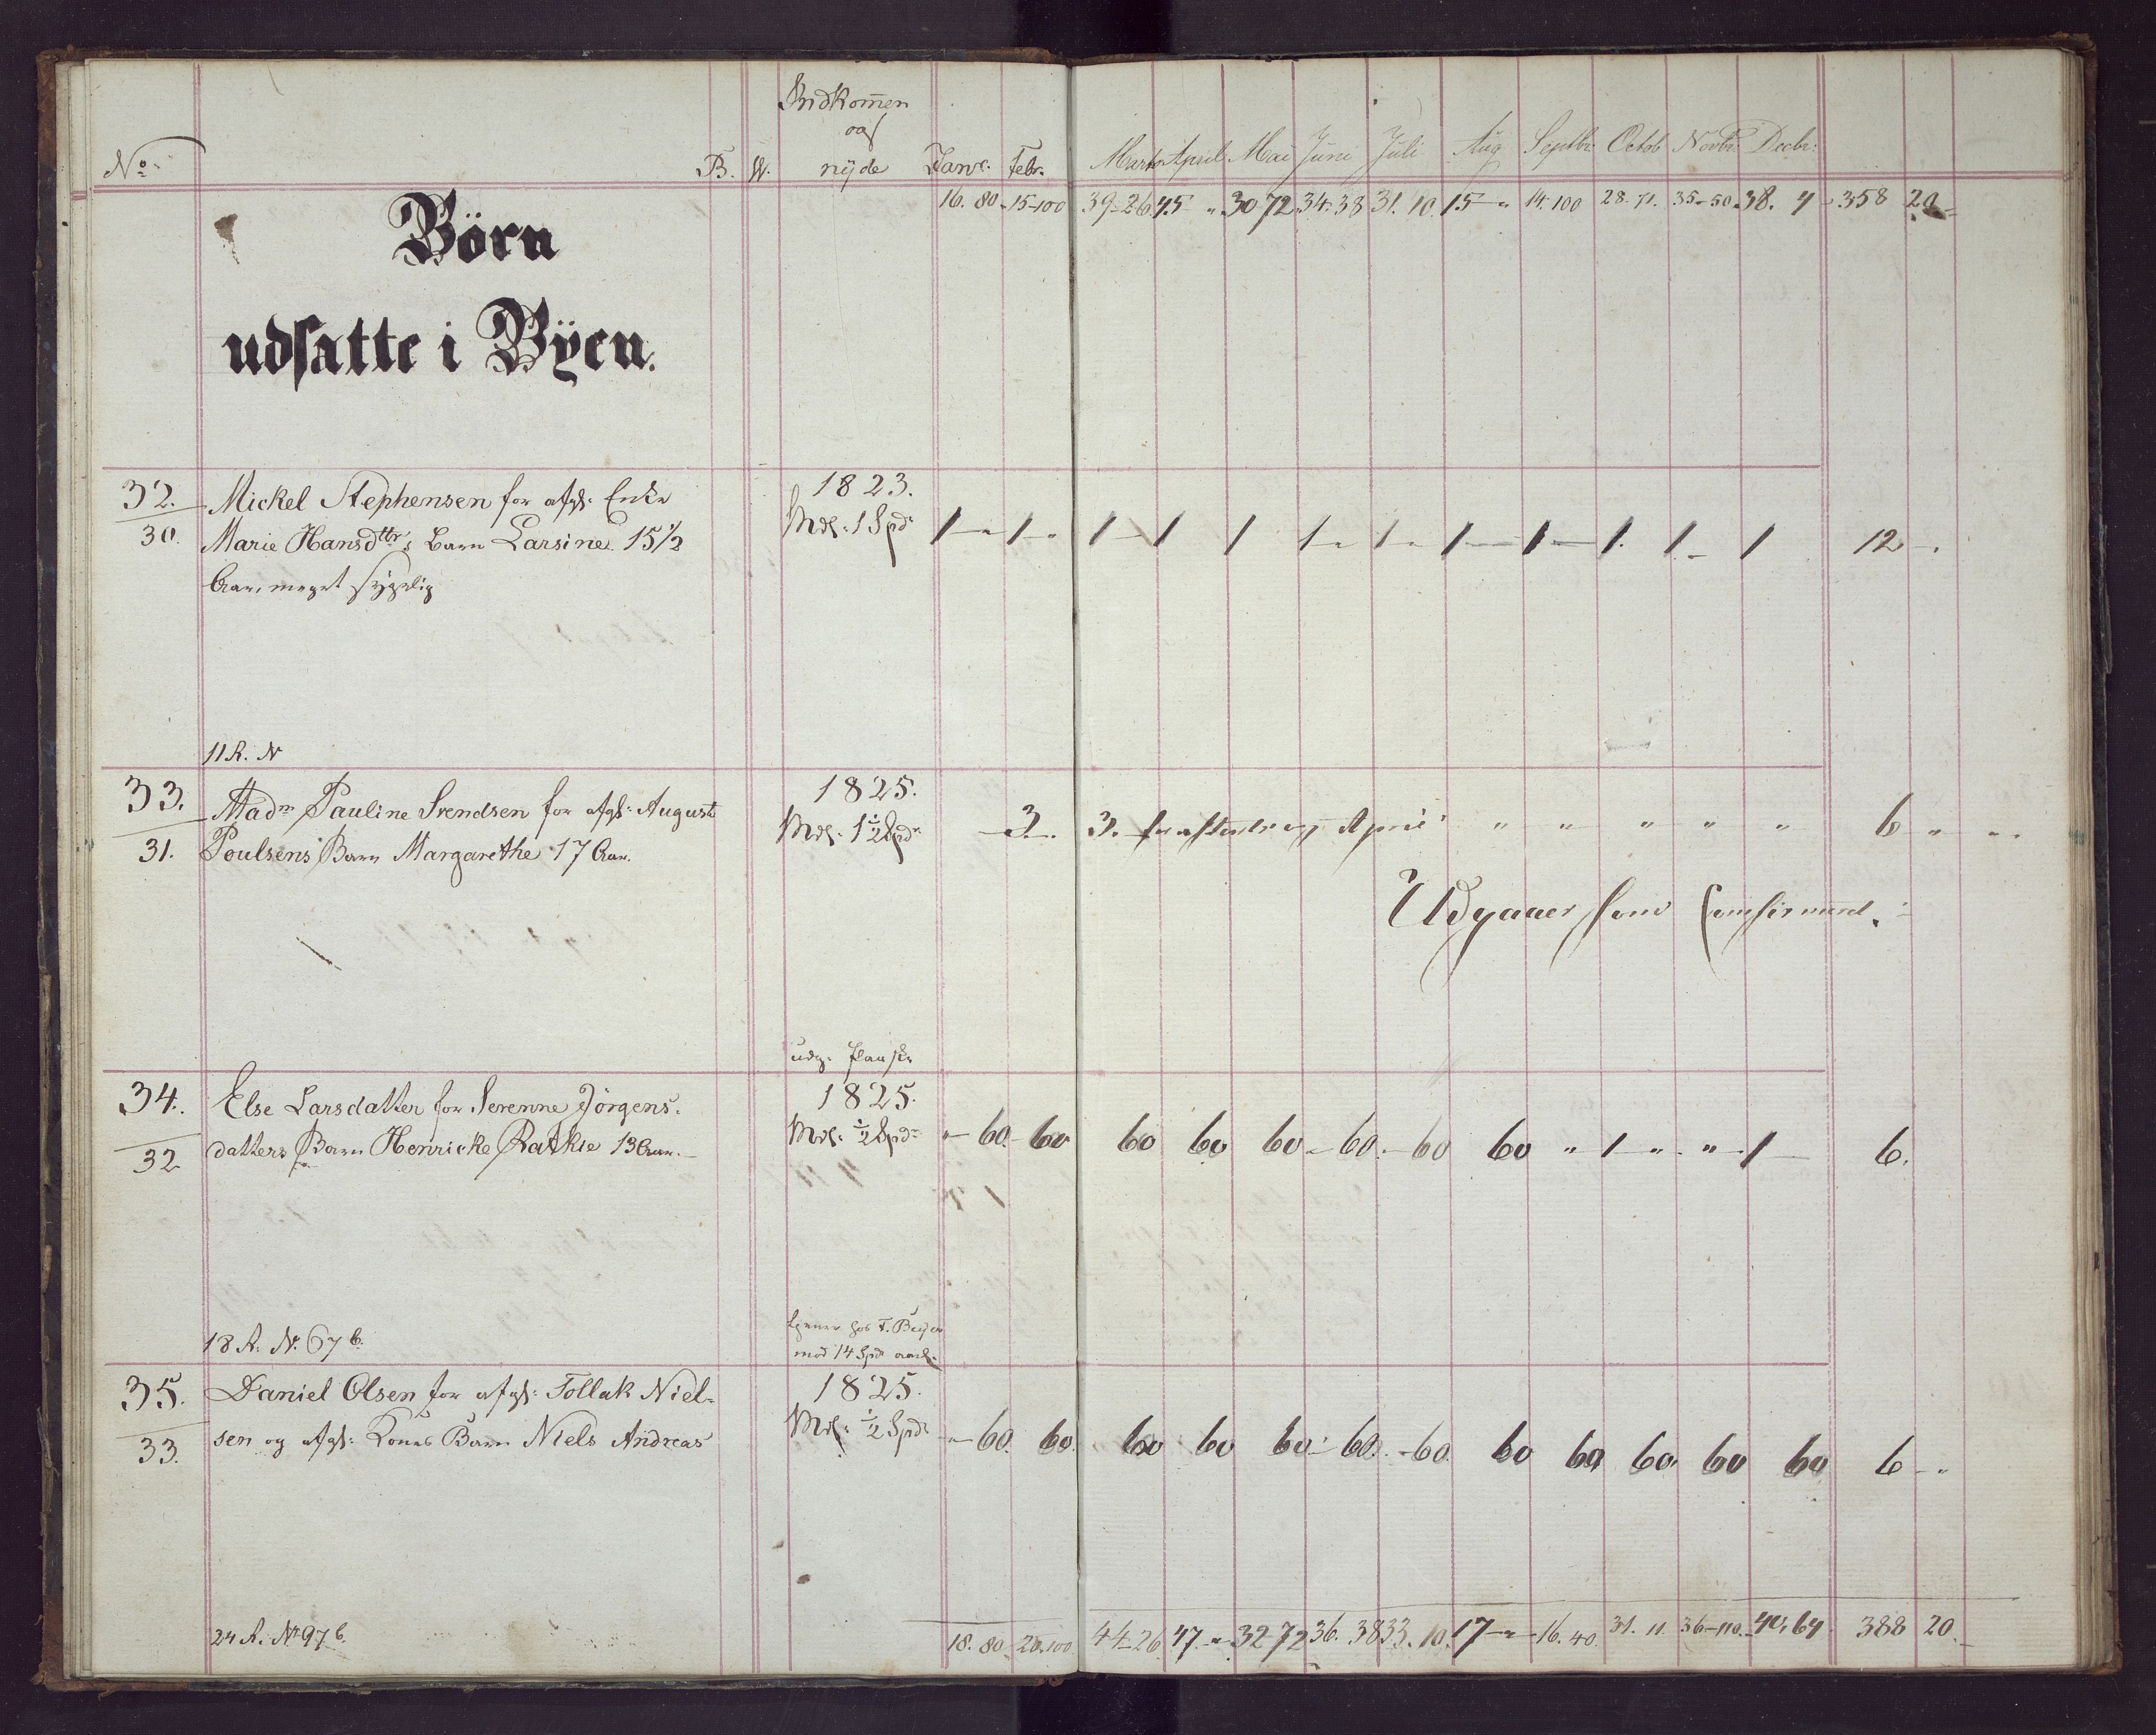 No. B. W. Indkom̄en og nÿde Janr. Febr. Marts April Mai Juni Juli Aug Septbr. Octob Novbr. Decbr.
16. 80 15-100 39-26 45 „ 30 72 34-38 31. 10. 15-„ 14-100 28. 71. 35-50 38. 4 358 20
Börn
udsatte i Bÿen.
32. Mickel Stephensen for afgl: Enke 1823.
30. Marie Hansdttrs Barn Larsine 15½ Mdl: 1 Spd 1 1 1 1 1 1 1 1 1 1 1 1 12
Aar, meget sÿgelig
11 R. N
33. Madm Pauline Svendsen for afgl: August 1825.
31. Poulsens Barn Margarethe 17 Aar. Mdl: 1½ Spd 3. 3. April „ „ „ „ „ 6 „
Udgaaer som Confirmeret.
udg:
34. Else Larsdatter for Serenne Jörgens- 1825.
32 datters Barn Henricke Ratkie 13 Aar. Mdl: ½ Spd „ 60 60 60 60 60 60 60 60 „ 1 „ „ 1 6.
18 R. No. 67 b. tjener hos F. Beyer
mod 14 Spd aarl.
35. Daniel Olsen for afgl: Tollak Niel- 1825.
33. sen og afgl: Kones Barn Niels Andreas Mdl: ½ Spd „ 60. 60. 60 60 60 60. 60. 60 60 60. 60 60 6 „
24 R. No 97 b.
18. 80 20. 100 44-26 47. „ 32 72 36. 38 33. 10. 17 „ 16. 40. 31. 11. 36-110. 40. 64 388 20.